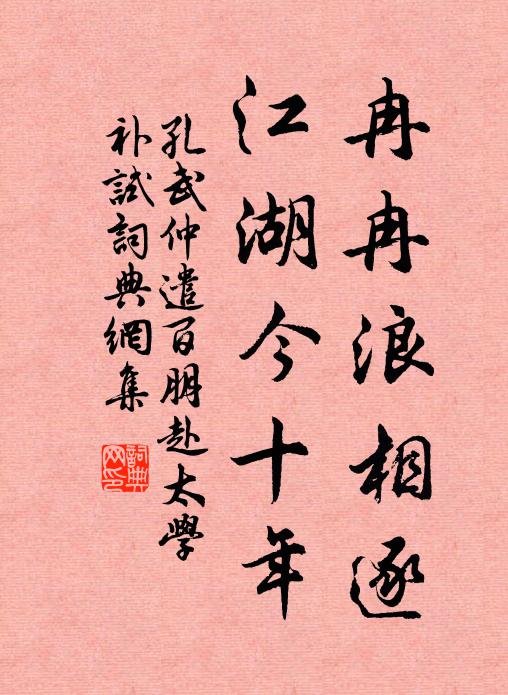 冉冉浪相逐
江湖今十年
孔武仲遣百朋赴太學
補試詞典網集
詞典
网印